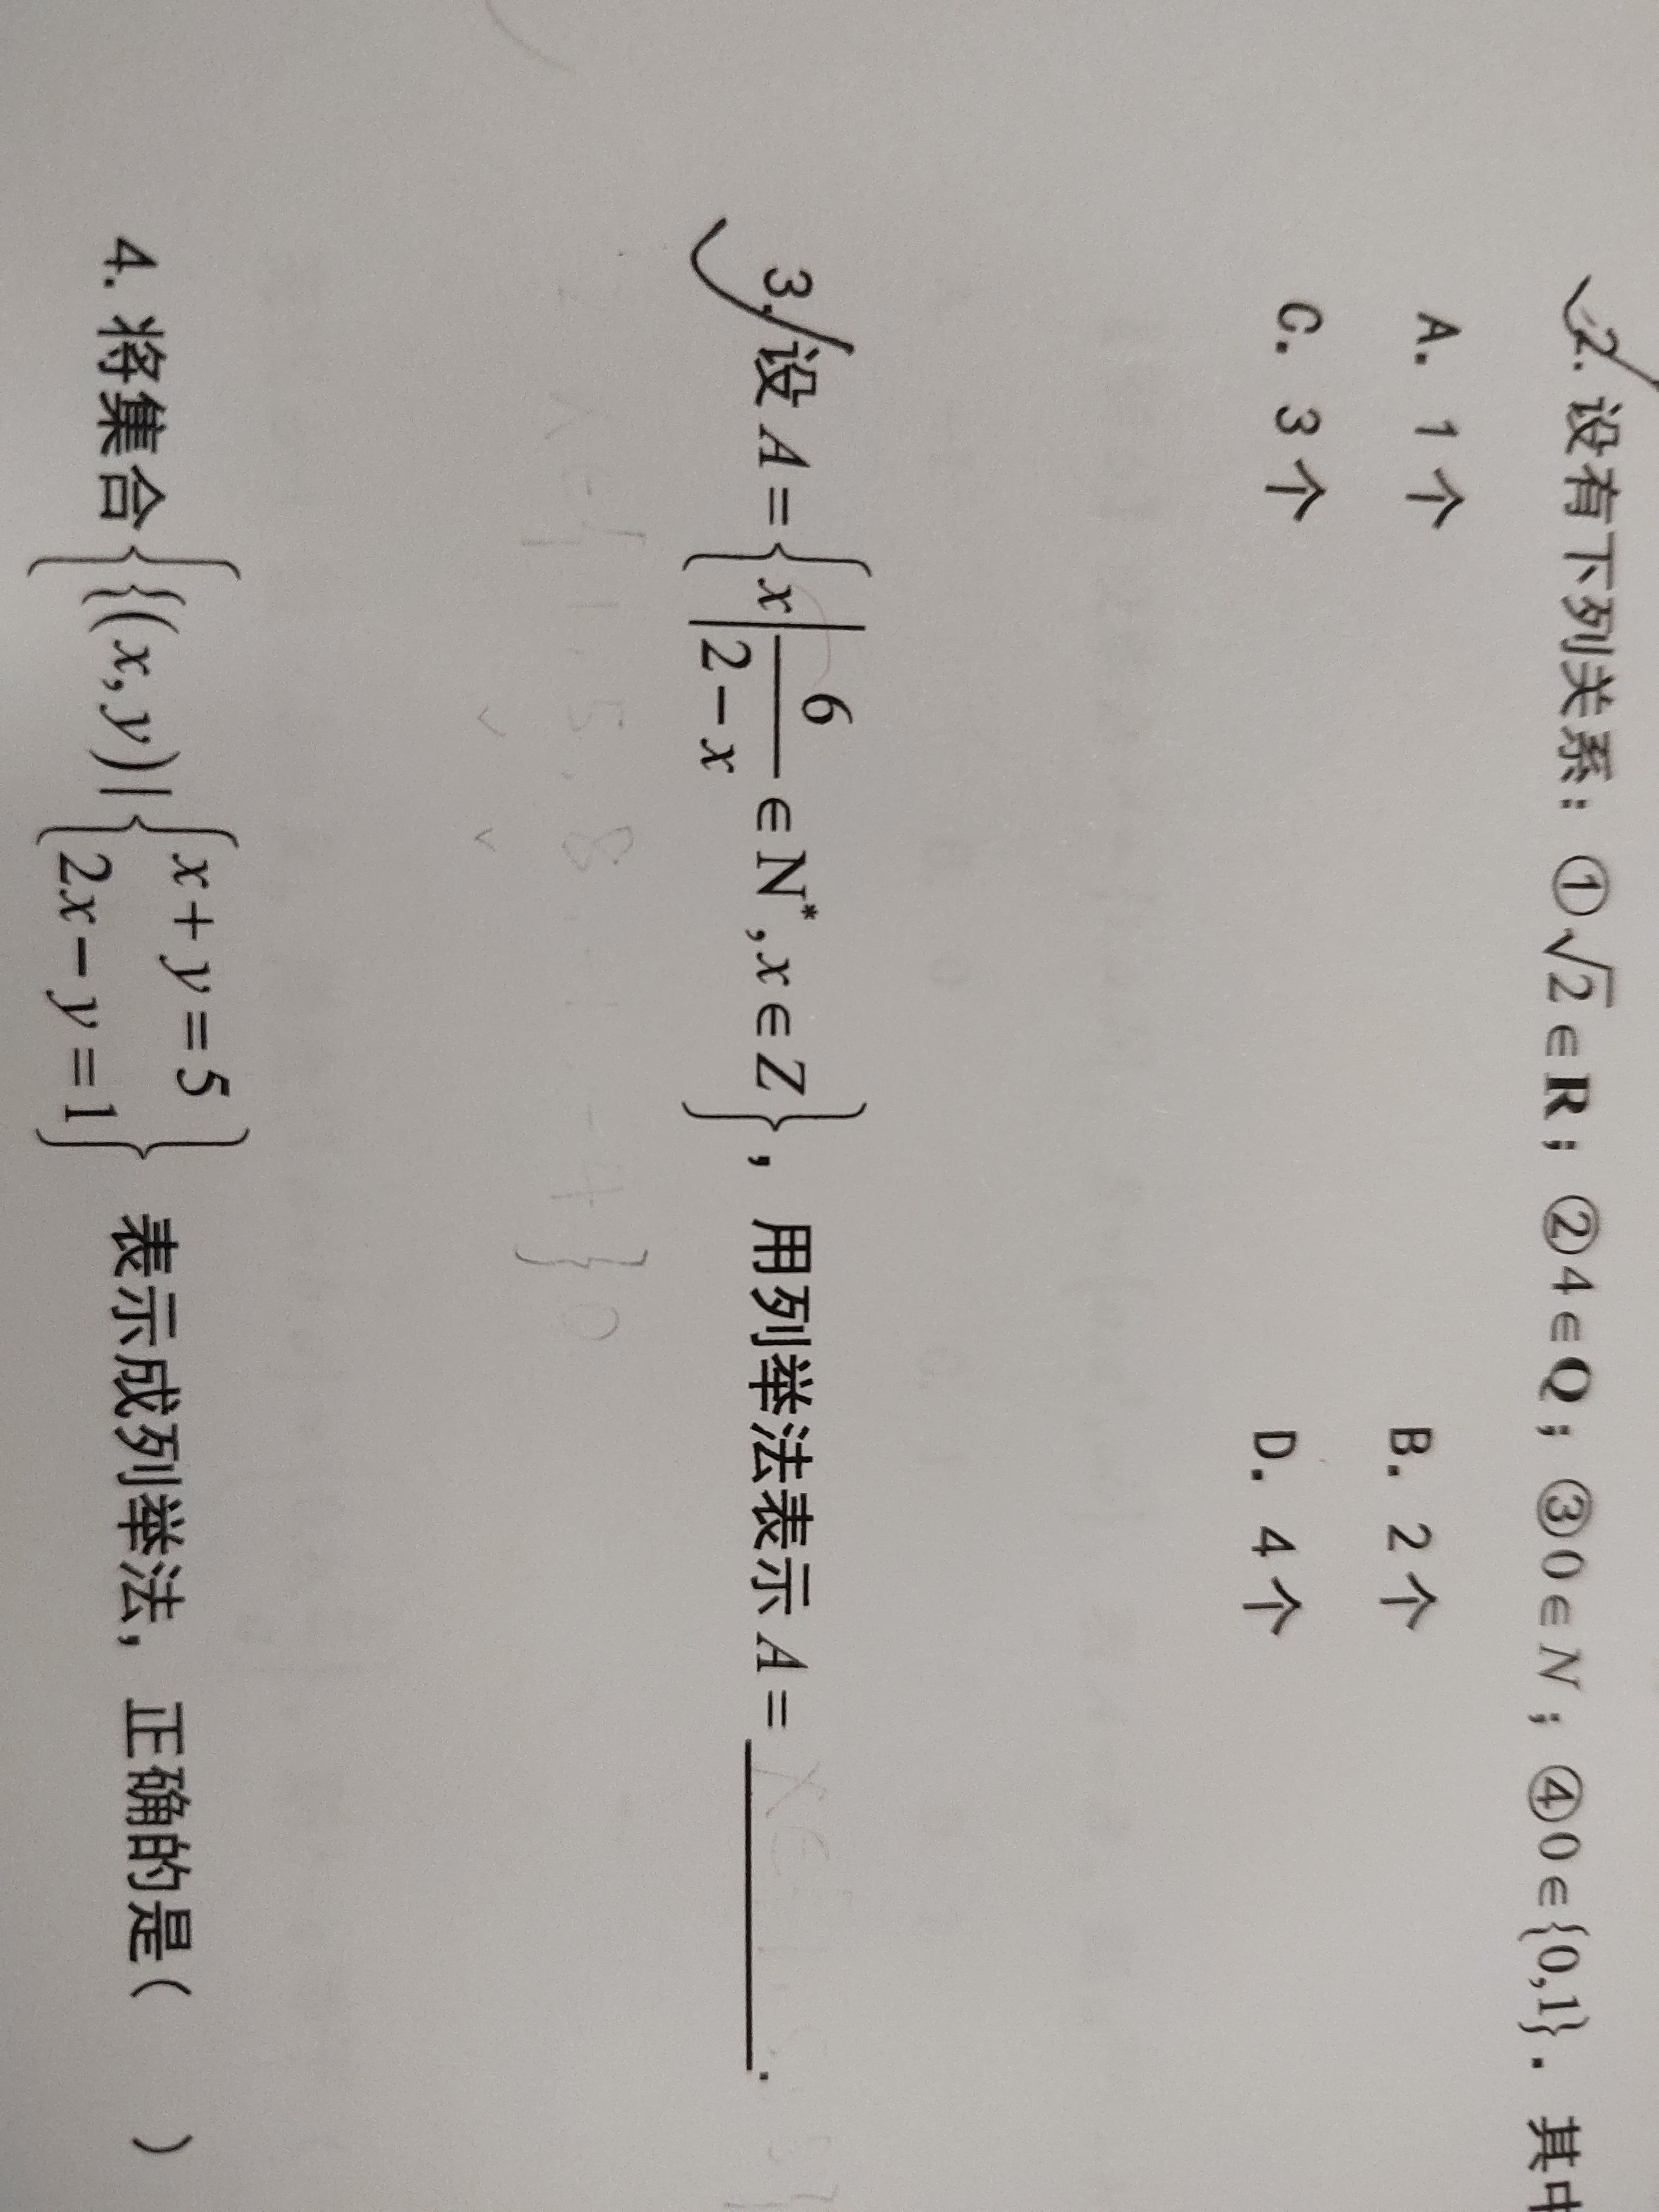 2. 设有下列关系：①√2∈R；②4∈Q；③0∈N；④0∈{0,1}．其中
A. 1个 B. 2个
C. 3个 D. 4个
3. 设A={x|6/(2-x)∈N*,x∈Z}，用列举法表示A=______.
4. 将集合{{(x,y)|{x+y=5 2x-y=1}表示成列举法，正确的是（ ）